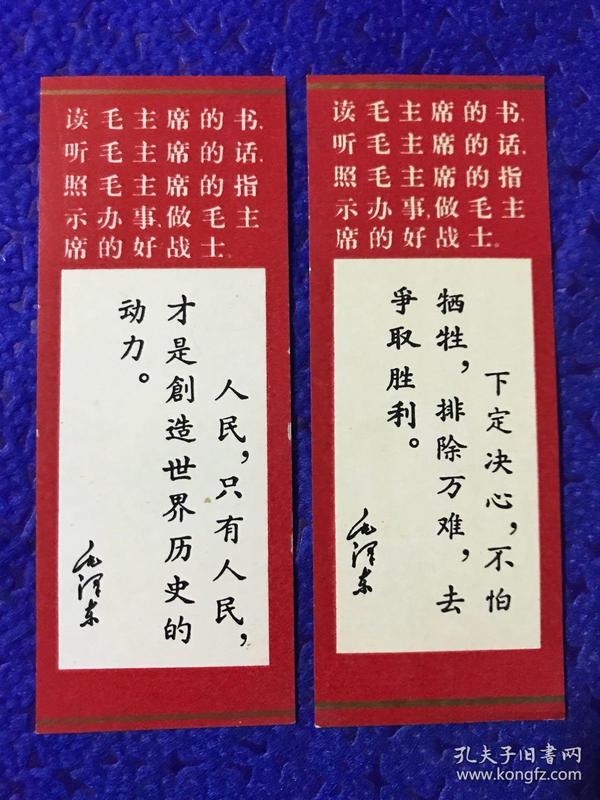 读毛主席的书，
听毛主席的话，
照毛主席的指
示办事，做毛主
席的好战士。
人民，只有人民，
才是創造世界历史的
动力。
毛泽东
读毛主席的书，
听毛主席的话，
照毛主席的指
示办事，做毛主
席的好战士。
下定决心，不怕
牺牲，排除万难，去
爭取胜利。
毛泽东
孔夫子旧書网
www.kongfz.com